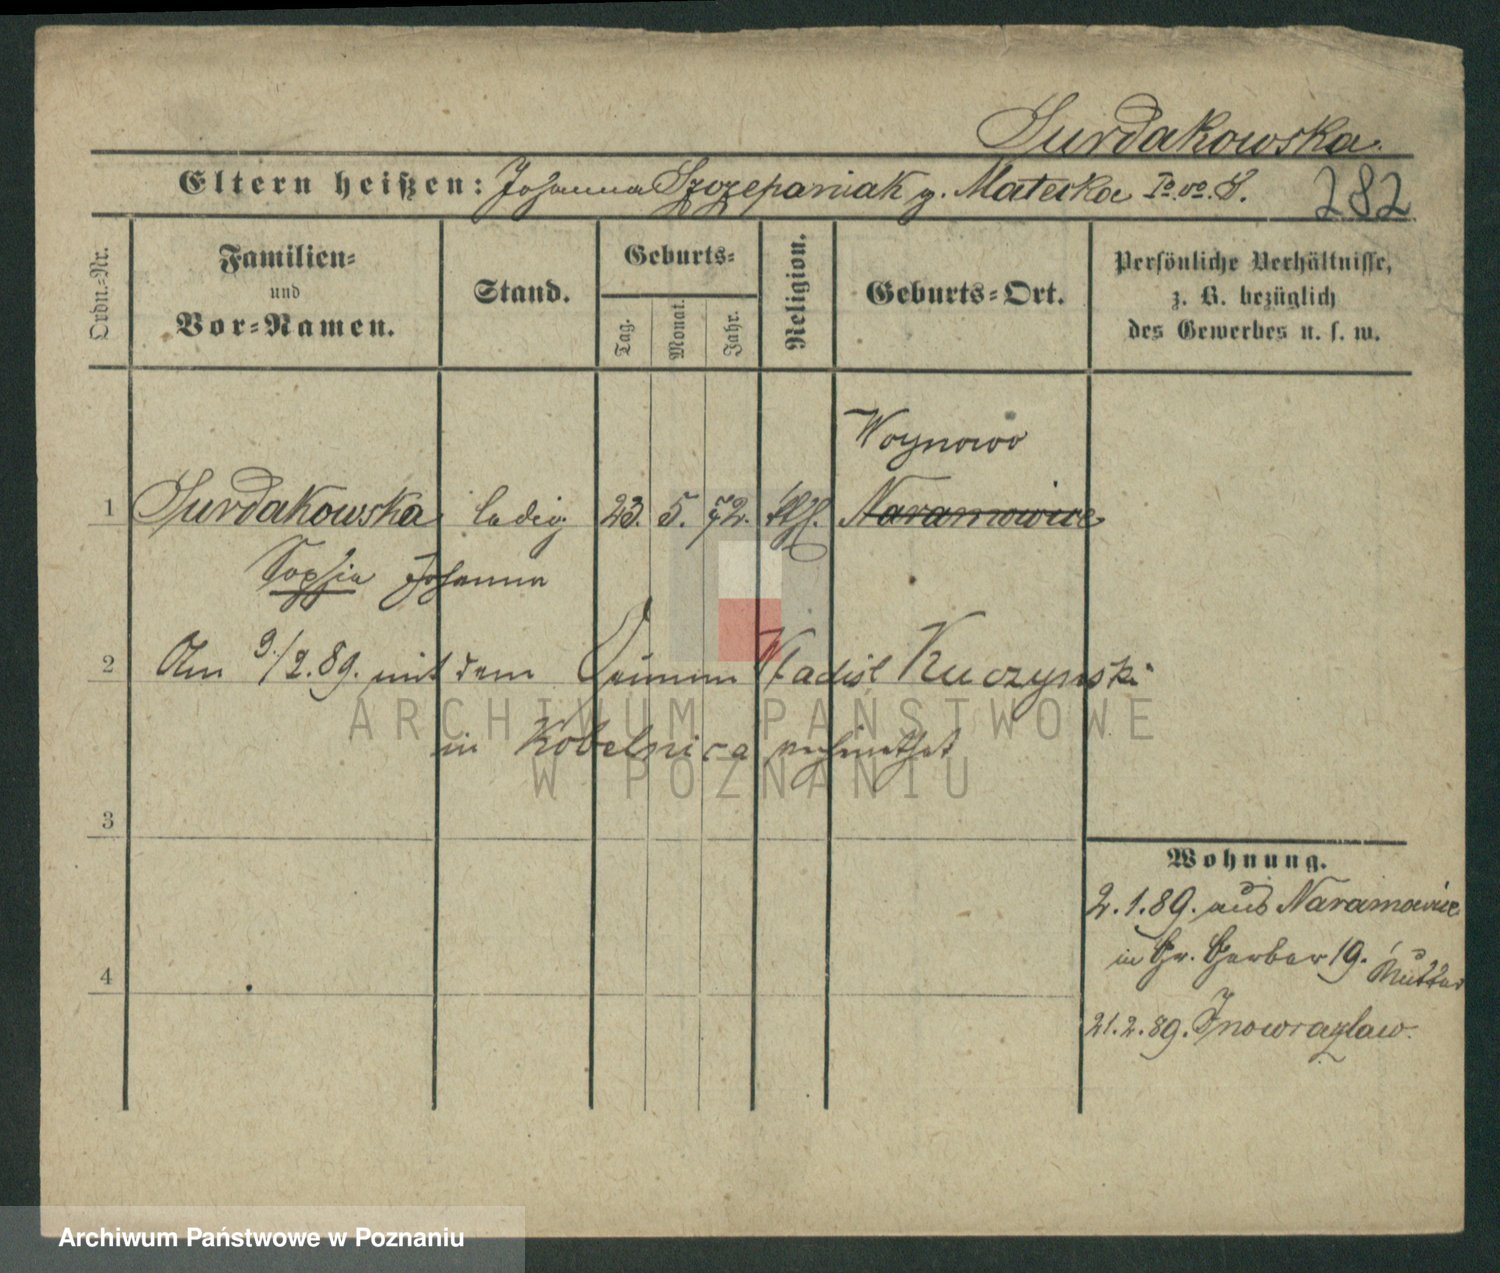 Surdakowska.
Eltern heißen: Johanna Szczepaniak g. Mateska Io vo S. 282
Ordn.-Nr.
Familien-
und
Vor-Namen.
Stand.
Geburts-
Tag.
Monat.
Jahr.
Religion.
Geburts-Ort.
Persönliche Verhältnisse,
z. B. bezüglich
des Gewerbes u. s. w.
Woynowo
1 Surdakowska ledig 23. 5. 72. kath. Naramowice
Sophia Johanna
2 Am 9/2.89. mit dem Wladisl Kuczynski
in Kobelnica verheirathet
3
4
Wohnung.
2.1.89. aus Naramowice
in Gr. Gerber 19. Mutter
21.2.89. Inowrazlaw.
ARCHIWUM PAŃSTWOWE
W POZNANIU
Archiwum Państwowe w Poznaniu